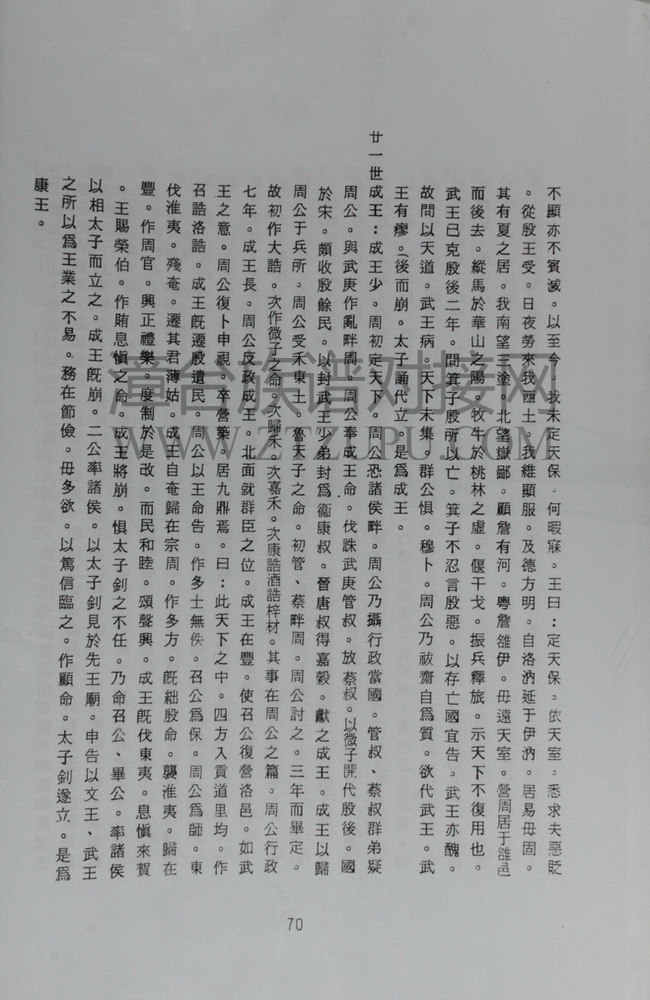 不顯亦不賓滅。以至今。我未定天保。何暇寐。王曰：定天保。依天室。悉求夫惡貶
。從殷王受。日夜勞來我西土。我維顯服。及德方明。自洛汭延于伊汭。居易毋固。
其有夏之居。我南望三塗。北望嶽鄙。顧詹有河。粵詹雒伊。毋遠天室。營周居于雒邑
而後去。縱馬於華山之陽。牧牛於桃林之虛。偃干戈。振兵釋旅。示天下不復用也。
武王已克殷後二年。問箕子殷所以亡。箕子不忍言殷惡。以存亡國宜告。武王亦醜。
故問以天道。武王病。天下未集。群公懼。穆卜。周公乃祓齋自爲質。欲代武王。武
王有瘳。後而崩。太子誦代立。是爲成王。
廿一世成王：成王少。周初定天下。周公恐諸侯畔。周公乃攝行政當國。管叔、蔡叔群弟疑
周公。與武庚作亂畔周。周公奉成王命。伐誅武庚管叔。放蔡叔。以微子開代殷後。國
於宋。頗收殷餘民。以封武王少弟封爲衞康叔。晉唐叔得嘉穀。獻之成王。成王以歸
周公于兵所。周公受禾東土。魯天子之命。初管、蔡畔周。周公討之。三年而畢定。
故初作大誥。次作微子之命。次歸禾。次嘉禾。次康誥酒誥梓材。其事在周公之篇。周公行政
七年。成王長。周公反政成王。北面就群臣之位。成王在豐。使召公復營洛邑。如武
王之意。周公復卜申視。卒營築。居九鼎焉。曰：此天下之中。四方入貢道里均。作
召誥洛誥。成王旣遷殷遺民。周公以王命告。作多士無佚。召公爲保。周公爲師。東
伐淮夷。殘奄。遷其君薄姑。成王自奄歸在宗周。作多方。旣絀殷命。襲淮夷。歸在
豐。作周官。興正禮樂。度制於是改。而民和睦。頌聲興。成王旣伐東夷。息愼來賀
。王賜榮伯。作賄息愼之命。成王將崩。懼太子釗之不任。乃命召公、畢公。率諸侯
以相太子而立之。成王旣崩。二公率諸侯。以太子釗見於先王廟。申告以文王、武王
之所以爲王業之不易。務在節儉。毋多欲。以篤信臨之。作顧命。太子釗遂立。是爲
康王。
70
漳台族谱对接网
WWW.ZTZUPU.COM